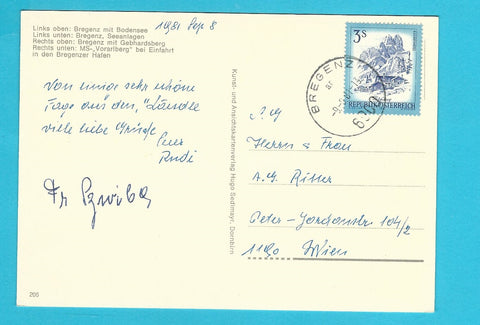 Links oben: Bregenz mit Bodensee
Links unten: Bregenz, Seeanlagen
Rechts oben: Bregenz mit Gebhardsberg
Rechts unten: MS-„Vorarlberg" bei Einfahrt
in den Bregenzer Hafen
1981 Sep 8
Von sehr schöne
Tage aus dem „Ländle
viele liebe Grüße
Euer
Rudi
206
Kunst- und Ansichtskartenverlag Hugo Sedlmayr, Dornbirn
3s
REPUBLIK ÖSTERREICH
BREGENZ
6900
Herrn u Frau
A. G. Ritter
Peter-Jordanstr 104/2
1190 Wien